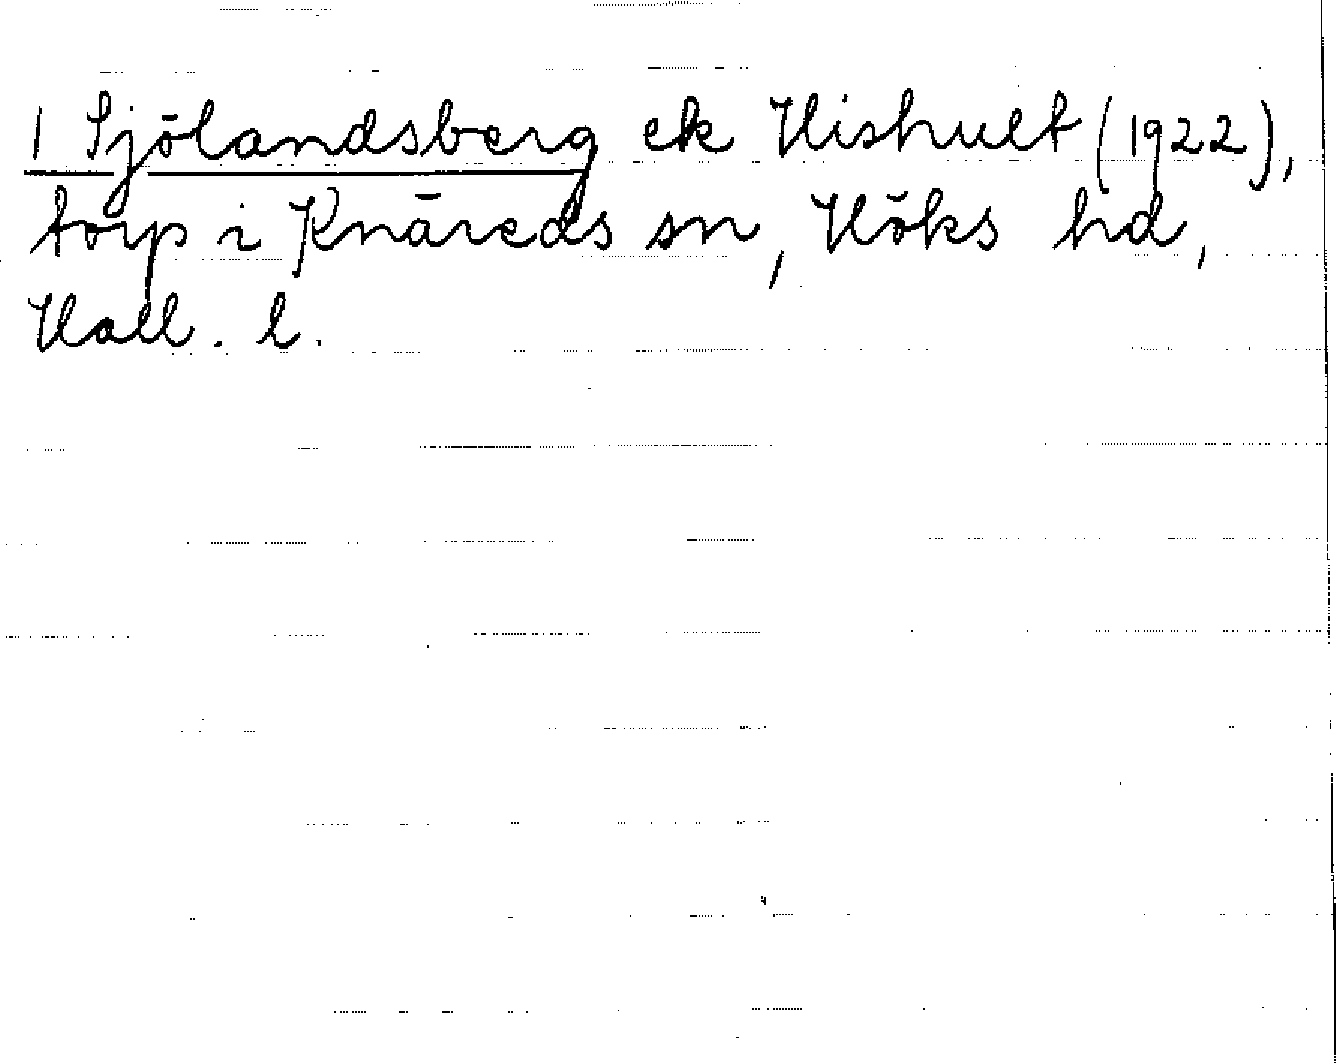 1 Sjölandsberg ek Hishult (1922),
torp i Knäreds sn, Höks hd,
Hall. l.